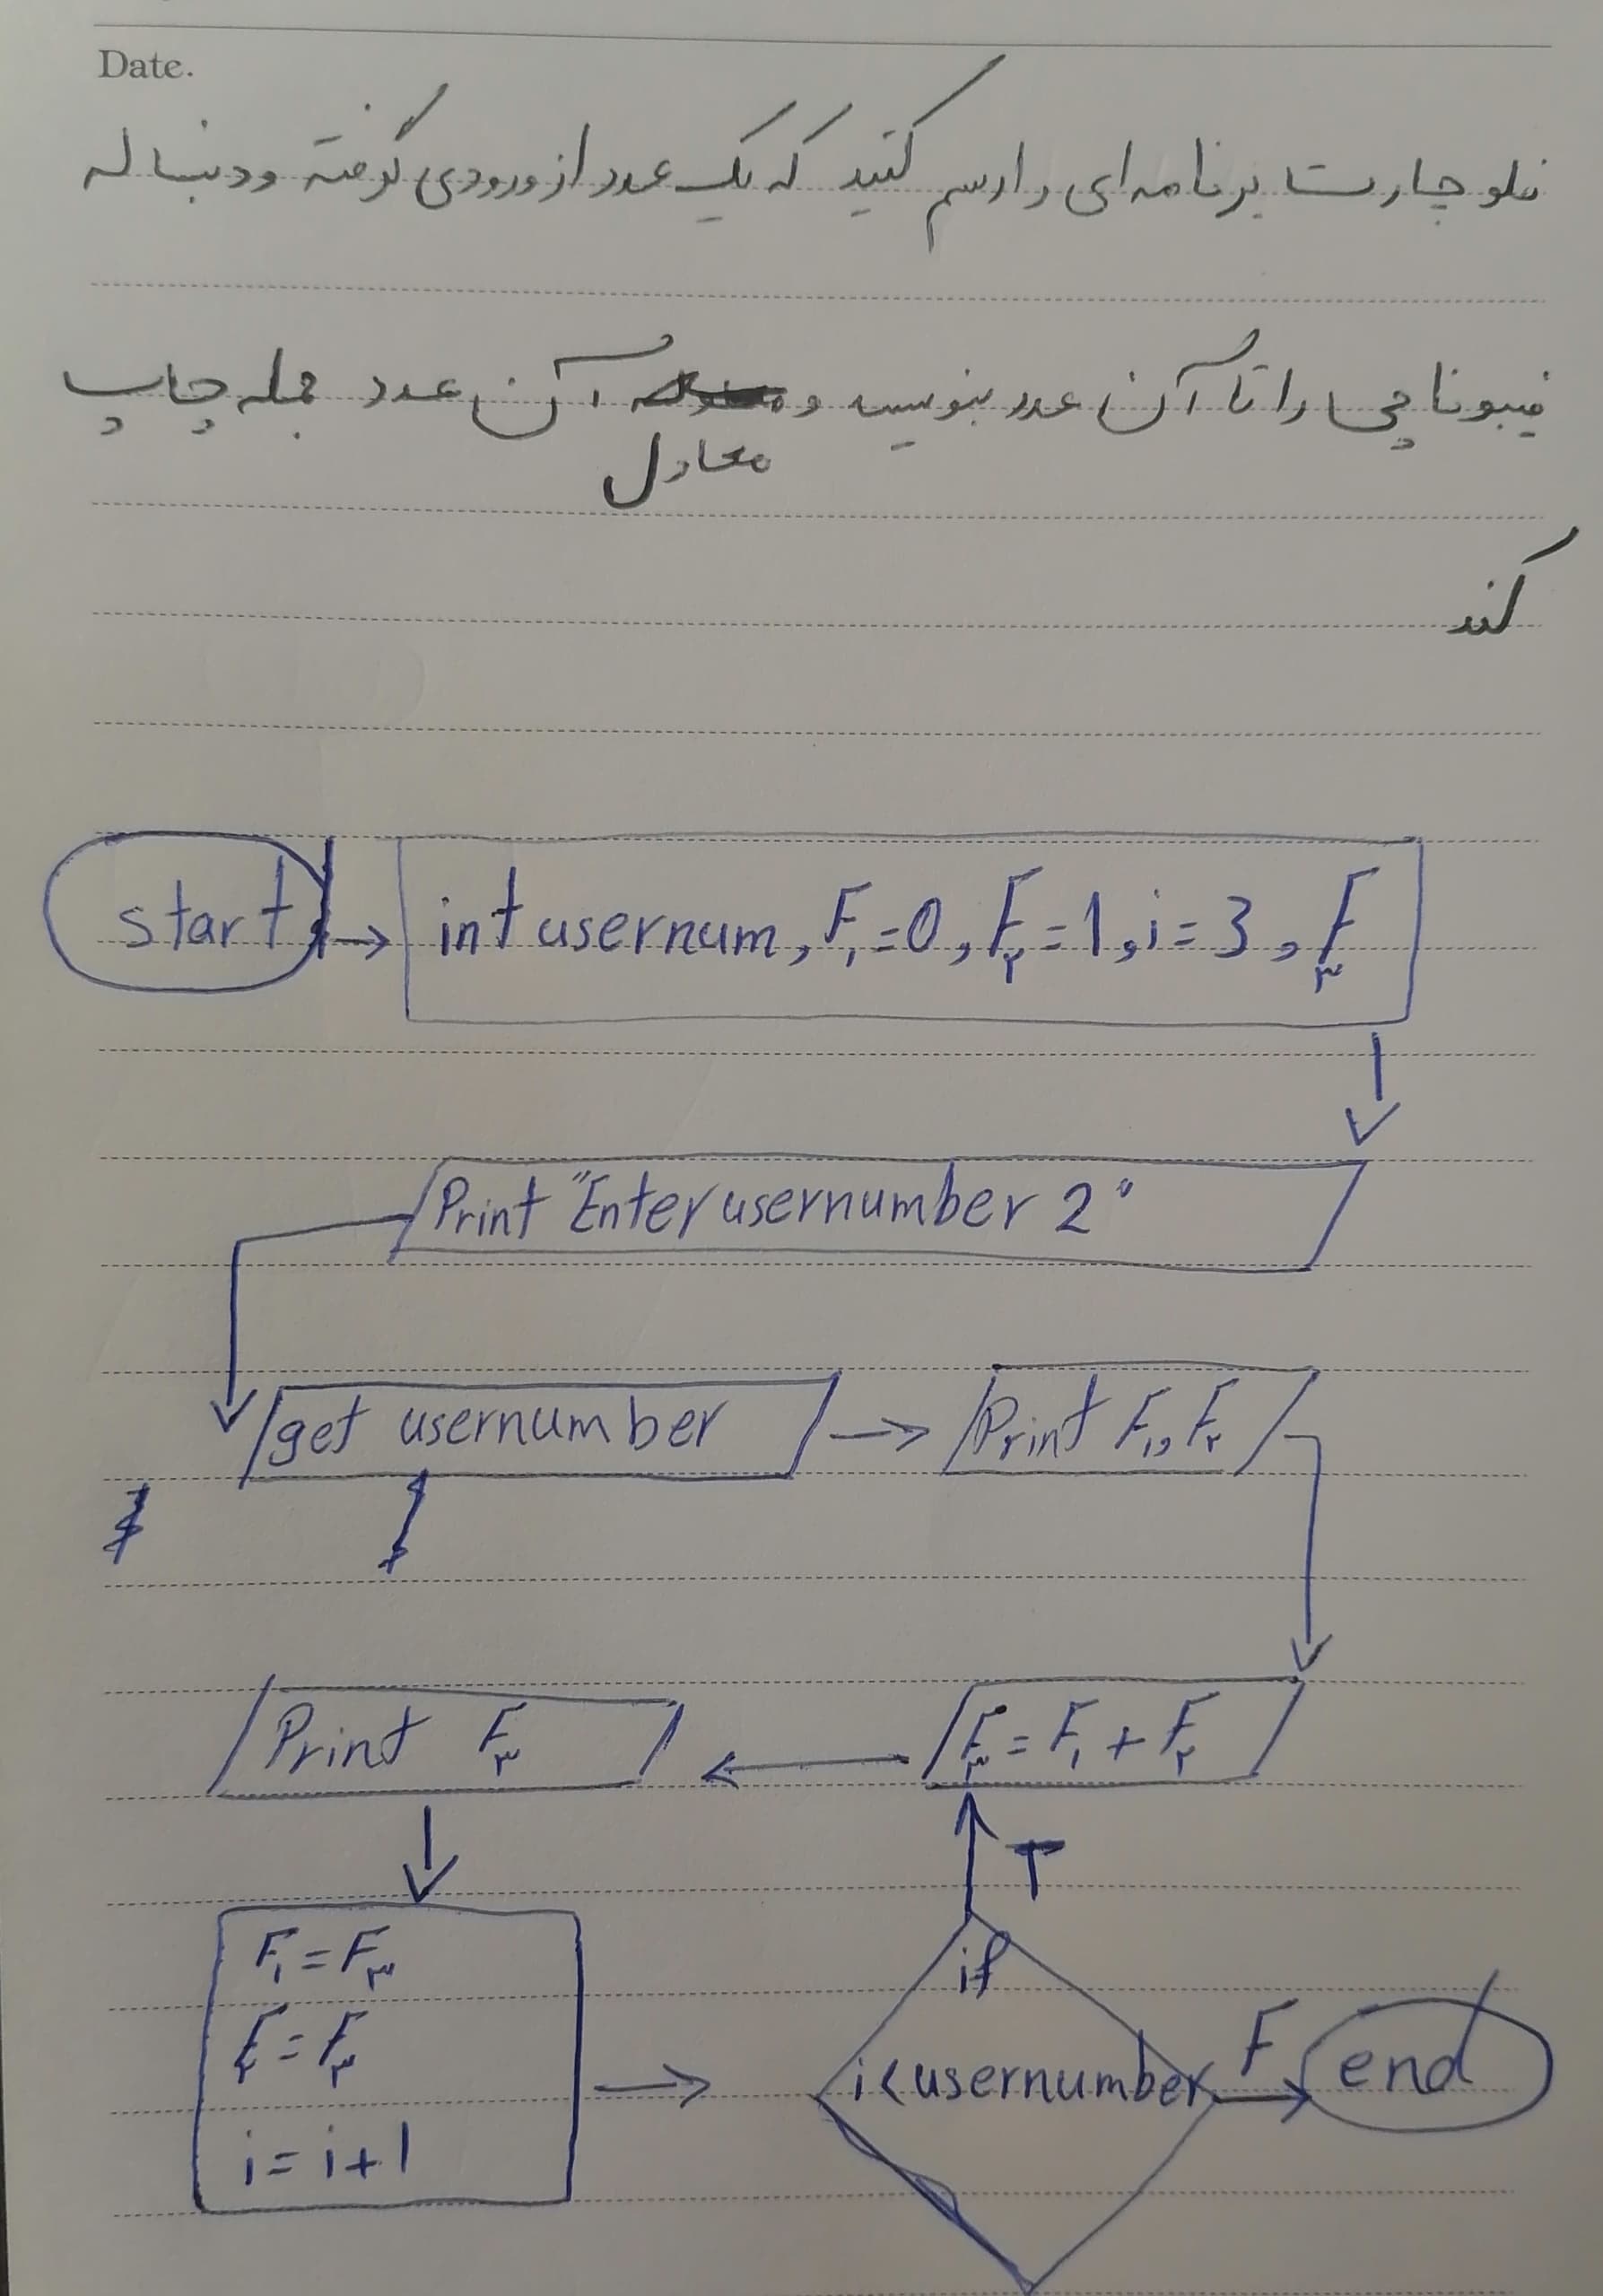 Date.
فلوچارت برنامه‌ای را رسم کنید که یک عدد از ورودی گرفته و دنباله
فیبوناچی را تا آن عدد بنویسد و آن عدد جمله چاپ
معادل
کند
start → int usernum, F₁=0, F₂=1, i=3, F₃
Print "Enter usernumber 2"
get usernumber → Print F₁, F₂
Print F₃ ← F₃ = F₁ + F₂
T
F₁ = F₃
if
F₂ = F₃
i < usernumber F → end
i = i + 1